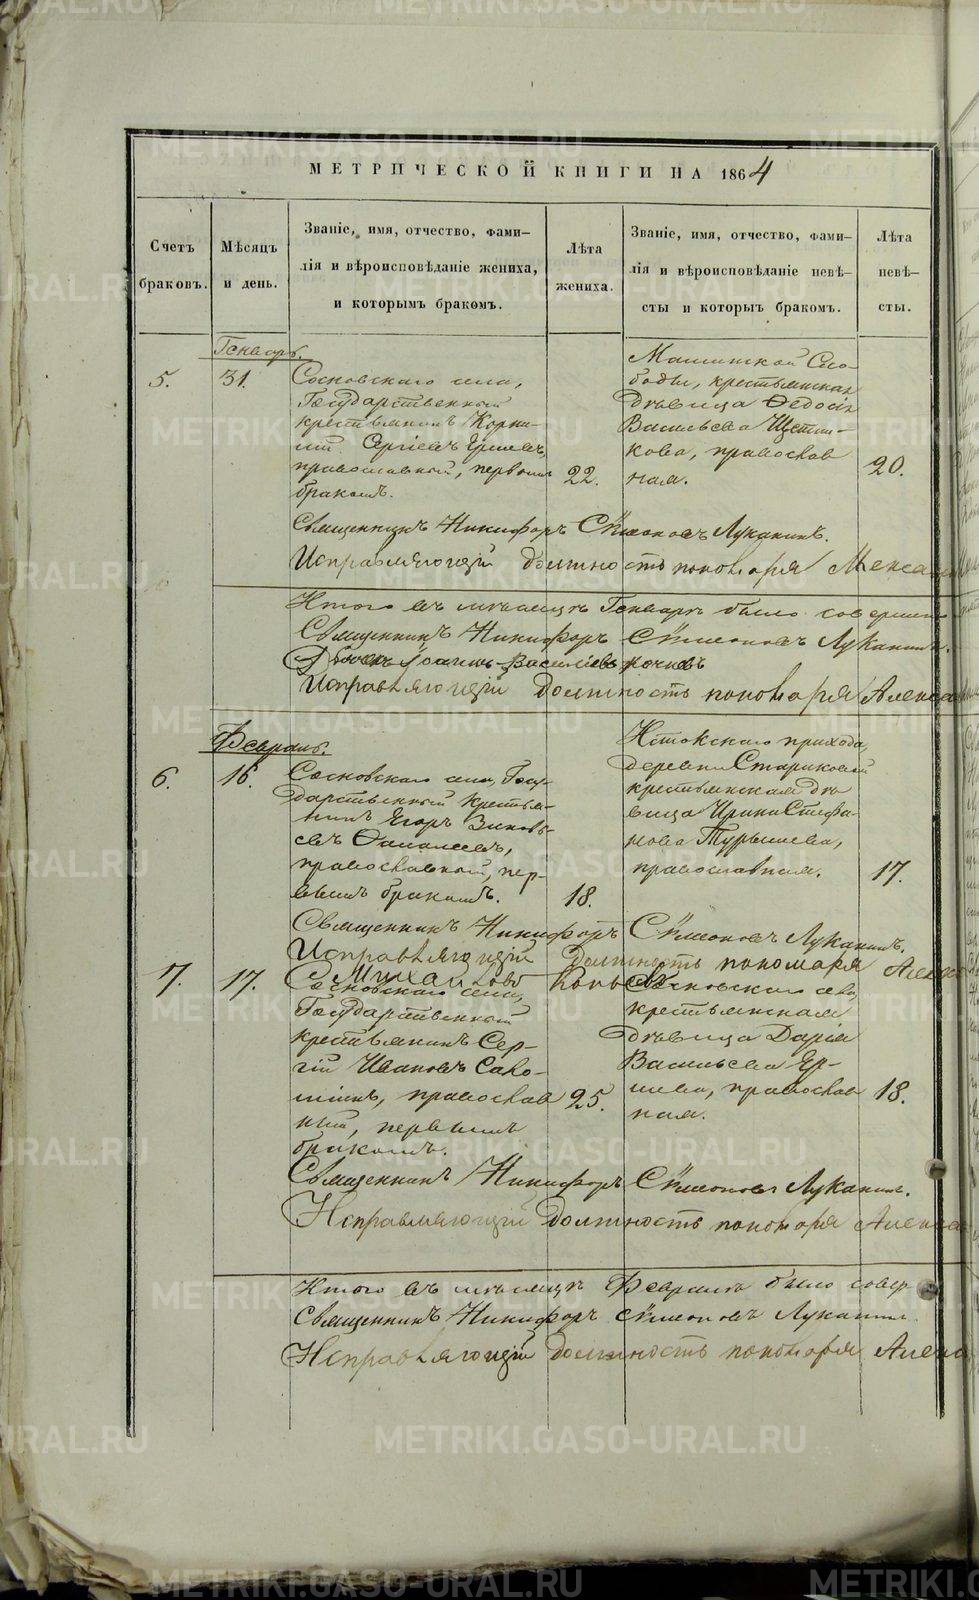 МЕТРИЧЕСКОЙ КНИГИ НА 1864
Счетъ
браковъ.
Мѣсяцъ
и день.
Званіе, имя, отчество, фами-
лія и вѣроисповѣданіе жениха,
и которымъ бракомъ.
Лѣта
жениха.
Званіе, имя, отчество, фами-
лія и вѣроисповѣданіе невѣ-
сты и которыъ бракомъ.
Лѣта
невѣ-
сты.
Генварь.
5.
31.
Сосновскаго села,
Государственный
крестьянинъ Корни-
лій Сергіевъ Ершевъ,
православный, первымъ
бракомъ.
22.
Слo-
боды, крестьянская
дѣвица Ѳедосія
Васильева Щетни-
кова, православ
ная.
20.
Священникъ Никифоръ Сѵмеоновъ Луканинъ.
Исправляющій должность пономаря Алекса
Итого въ мѣсяцѣ Генварѣ было соверше
Священникъ Никифоръ Сѵмеоновъ Луканинъ.
Іоаннъ Васильевъ
Исправляющій должность пономаря Алекса
Февраль.
6.
16.
Сосновскаго села, Госу-
дарственный крестья-
нинъ Егоръ Зиновь-
евъ
православный, пер-
вымъ бракомъ.
18.
Истокскаго прихода,
деревни Стариковой
крестьянская дѣ
вица Ирина Стефа-
нова Турышева,
православная.
17.
Священникъ Никифоръ Сѵмеоновъ Луканинъ.
Исправляющій должность пономаря Алекс
Михайловъ
7.
17.
Сосновскаго села,
Государственный
крестьянинъ Сер-
гій Ивановъ Сако-
православ
ный, первымъ
бракомъ.
25.
Сосновскаго села,
крестьянская
дѣвица Дарія
Васильева Ер-
шева, православ
ная.
18.
Священникъ Никифоръ Сѵмеоновъ Луканинъ.
Исправляющій должность пономаря Алекса
Итого въ мѣсяцѣ Февралѣ было совер
Священникъ Никифоръ Сѵмеоновъ Луканинъ
Исправляющій должность пономаря Алекса
METRIKI.GASO-URAL.RU